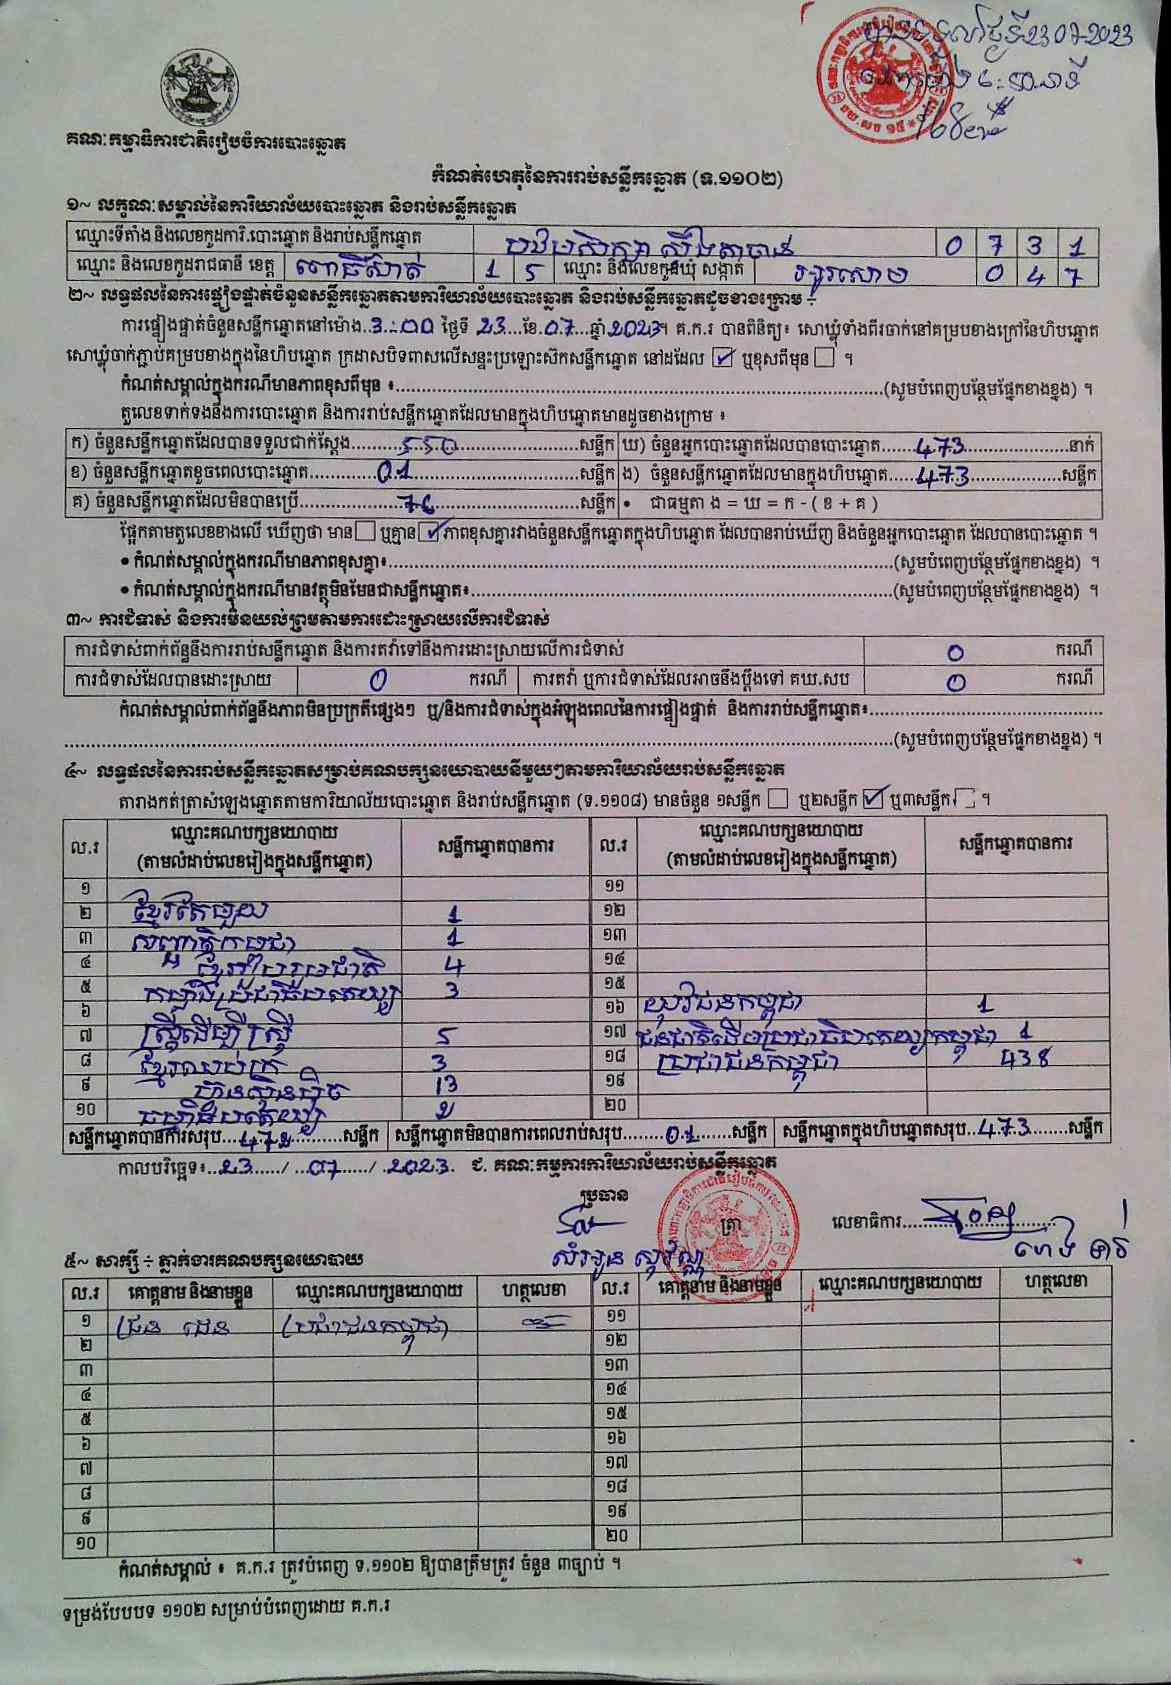 គណៈកម្មាធិការជាតិរៀបចំការបោះឆ្នោត
កំណត់ហេតុនៃការរាប់សន្លឹកឆ្នោត (ទ.១១០២)
១~ លក្ខណៈសម្គាល់នៃការិយាល័យបោះឆ្នោត និងរាប់សន្លឹកឆ្នោត
ឈ្មោះទីតាំង និងលេខកូដការិ.បោះឆ្នោត និងរាប់សន្លឹកឆ្នោត 0 7 3 1
ឈ្មោះ និងលេខកូដរាជធានី ខេត្ត ពោធិ៍សាត់ 1 5 ឈ្មោះ និងលេខកូដឃុំ សង្កាត់ អូរសោម 0 4 7
២~ លទ្ធផលនៃការផ្ទៀងផ្ទាត់ចំនួនសន្លឹកឆ្នោតតាមការិយាល័យបោះឆ្នោត និងរាប់សន្លឹកឆ្នោតដូចខាងក្រោម ÷
ការផ្ទៀងផ្ទាត់ចំនួនសន្លឹកឆ្នោតនៅម៉ោង 3:00 ថ្ងៃទី 23 ខែ 07 ឆ្នាំ 2023។ គ.ក.រ បានពិនិត្យ៖ សោឃ្លុំទាំងពីរចាក់នៅគម្របខាងក្រៅនៃហិបឆ្នោត
សោឃ្លុំចាក់ភ្ជាប់គម្របខាងក្នុងនៃហិបឆ្នោត ក្រដាសបិទពាសលើសន្ទះប្រឡោះស៊កសន្លឹកឆ្នោត នៅដដែល ☑ ឬខុសពីមុន ☐ ។
កំណត់សម្គាល់ក្នុងករណីមានភាពខុសពីមុន ៖ (សូមបំពេញបន្ថែមផ្នែកខាងខ្នង) ។
តួលេខទាក់ទងនឹងការបោះឆ្នោត និងការរាប់សន្លឹកឆ្នោតដែលមានក្នុងហិបឆ្នោតមានដូចខាងក្រោម ៖
ក) ចំនួនសន្លឹកឆ្នោតដែលបានទទួលជាក់ស្តែង 550 សន្លឹក ឃ) ចំនួនអ្នកបោះឆ្នោតដែលបានបោះឆ្នោត 473 នាក់
ខ) ចំនួនសន្លឹកឆ្នោតខូចពេលបោះឆ្នោត 01 សន្លឹក ង) ចំនួនសន្លឹកឆ្នោតដែលមានក្នុងហិបឆ្នោត 473 សន្លឹក
គ) ចំនួនសន្លឹកឆ្នោតដែលមិនបានប្រើ 76 សន្លឹក • ជាធម្មតា ង = ឃ = ក - ( ខ + គ )
ផ្អែកតាមតួលេខខាងលើ ឃើញថា មាន ☐ ឬគ្មាន ☑ ភាពខុសគ្នារវាងចំនួនសន្លឹកឆ្នោតក្នុងហិបឆ្នោត ដែលបានរាប់ឃើញ និងចំនួនអ្នកបោះឆ្នោត ដែលបានបោះឆ្នោត ។
• កំណត់សម្គាល់ក្នុងករណីមានភាពខុសគ្នា៖ (សូមបំពេញបន្ថែមផ្នែកខាងខ្នង) ។
• កំណត់សម្គាល់ក្នុងករណីមានវត្ថុមិនមែនជាសន្លឹកឆ្នោត៖ (សូមបំពេញបន្ថែមផ្នែកខាងខ្នង) ។
៣~ ការជំទាស់ និងការមិនយល់ព្រមតាមការដោះស្រាយលើការជំទាស់
ការជំទាស់ពាក់ព័ន្ធនឹងការរាប់សន្លឹកឆ្នោត និងការតវ៉ាទៅនឹងការដោះស្រាយលើការជំទាស់ 0 ករណី
ការជំទាស់ដែលបានដោះស្រាយ 0 ករណី ការតវ៉ា ឬការជំទាស់ដែលអាចនឹងប្តឹងទៅ គឃ.សប 0 ករណី
កំណត់សម្គាល់ពាក់ព័ន្ធនឹងភាពមិនប្រក្រតីផ្សេងៗ ឬ/និងការជំទាស់ក្នុងអំឡុងពេលនៃការផ្ទៀងផ្ទាត់ និងការរាប់សន្លឹកឆ្នោត៖
(សូមបំពេញបន្ថែមផ្នែកខាងខ្នង) ។
៤~ លទ្ធផលនៃការរាប់សន្លឹកឆ្នោតសម្រាប់គណបក្សនយោបាយនីមួយៗតាមការិយាល័យរាប់សន្លឹកឆ្នោត
តារាងកត់ត្រាសំឡេងឆ្នោតតាមការិយាល័យបោះឆ្នោត និងរាប់សន្លឹកឆ្នោត (ទ.១១០៨) មានចំនួន ១សន្លឹក ☐ ឬ២សន្លឹក ☑ ឬ៣សន្លឹក ☐ ។
ល.រ ឈ្មោះគណបក្សនយោបាយ សន្លឹកឆ្នោតបានការ ល.រ ឈ្មោះគណបក្សនយោបាយ សន្លឹកឆ្នោតបានការ
(តាមលំដាប់លេខរៀងក្នុងសន្លឹកឆ្នោត) (តាមលំដាប់លេខរៀងក្នុងសន្លឹកឆ្នោត)
១ ១១
២ ខ្មែរតែមួយ 1 ១២
៣ សញ្ជាតិកម្ពុជា 1 ១៣
៤ ខ្មែររួបរួមជាតិ 4 ១៤
៥ កម្លាំងប្រជាធិបតេយ្យ 3 ១៥
៦ ១៦ យុវជនកម្ពុជា 1
៧ ស្ត្រីដើម្បីស្ត្រី 5 ១៧ ជនជាតិដើមប្រជាធិបតេយ្យកម្ពុជា 1
៨ ខ្មែរឈប់ក្រ 3 ១៨ ប្រជាជនកម្ពុជា 438
៩ ហ៊្វុនស៊ិនប៉ិច 13 ១៩
១០ ធម្មាធិបតេយ្យ 2 ២០
សន្លឹកឆ្នោតបានការសរុប 472 សន្លឹក សន្លឹកឆ្នោតមិនបានការពេលរាប់សរុប 01 សន្លឹក សន្លឹកឆ្នោតក្នុងហិបឆ្នោតសរុប 473 សន្លឹក
កាលបរិច្ឆេទ៖ 23 / 07 / 2023. ជ. គណៈកម្មការការិយាល័យរាប់សន្លឹកឆ្នោត
ប្រធាន ត្រា លេខាធិការ
៥~ សាក្សី ÷ ភ្នាក់ងារគណបក្សនយោបាយ
ល.រ គោត្តនាម និងនាមខ្លួន ឈ្មោះគណបក្សនយោបាយ ហត្ថលេខា ល.រ គោត្តនាម និងនាមខ្លួន ឈ្មោះគណបក្សនយោបាយ ហត្ថលេខា
១ ប្រជាជនកម្ពុជា ១១
២ ១២
៣ ១៣
៤ ១៤
៥ ១៥
៦ ១៦
៧ ១៧
៨ ១៨
៩ ១៩
១០ ២០
កំណត់សម្គាល់ ៖ គ.ក.រ ត្រូវបំពេញ ទ.១១០២ ឱ្យបានត្រឹមត្រូវ ចំនួន ៣ច្បាប់ ។
ទម្រង់បែបបទ ១១០២ សម្រាប់បំពេញដោយ គ.ក.រ